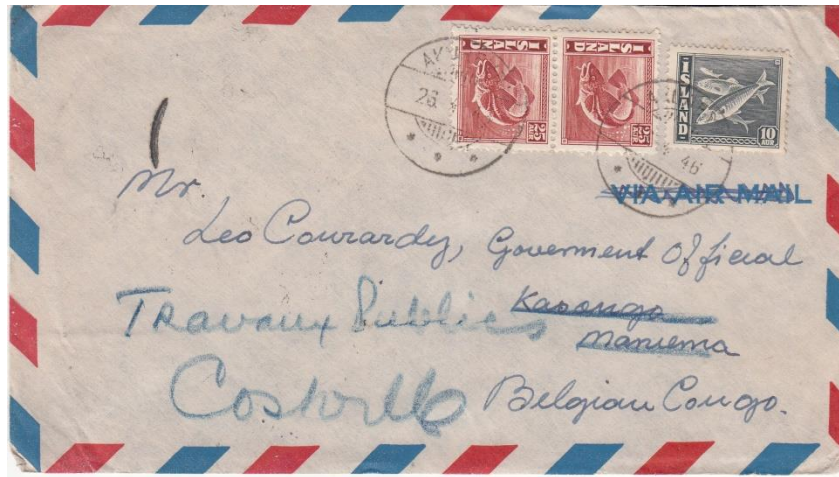 ÍSLAND 25 AUR
ÍSLAND 25 AUR
ÍSLAND 10 AUR
26
46
VIA AIR MAIL
Mr.
Leo Courardy, Goverment Official
Travaux Publics Kasongo
Maniema
Belgian Congo.